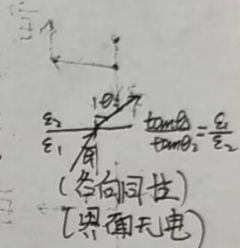 θ₂
ε₂
ε₁
θ₁
tanθ₁/tanθ₂ = ε₁/ε₂
(各向同性)
[界面无电]